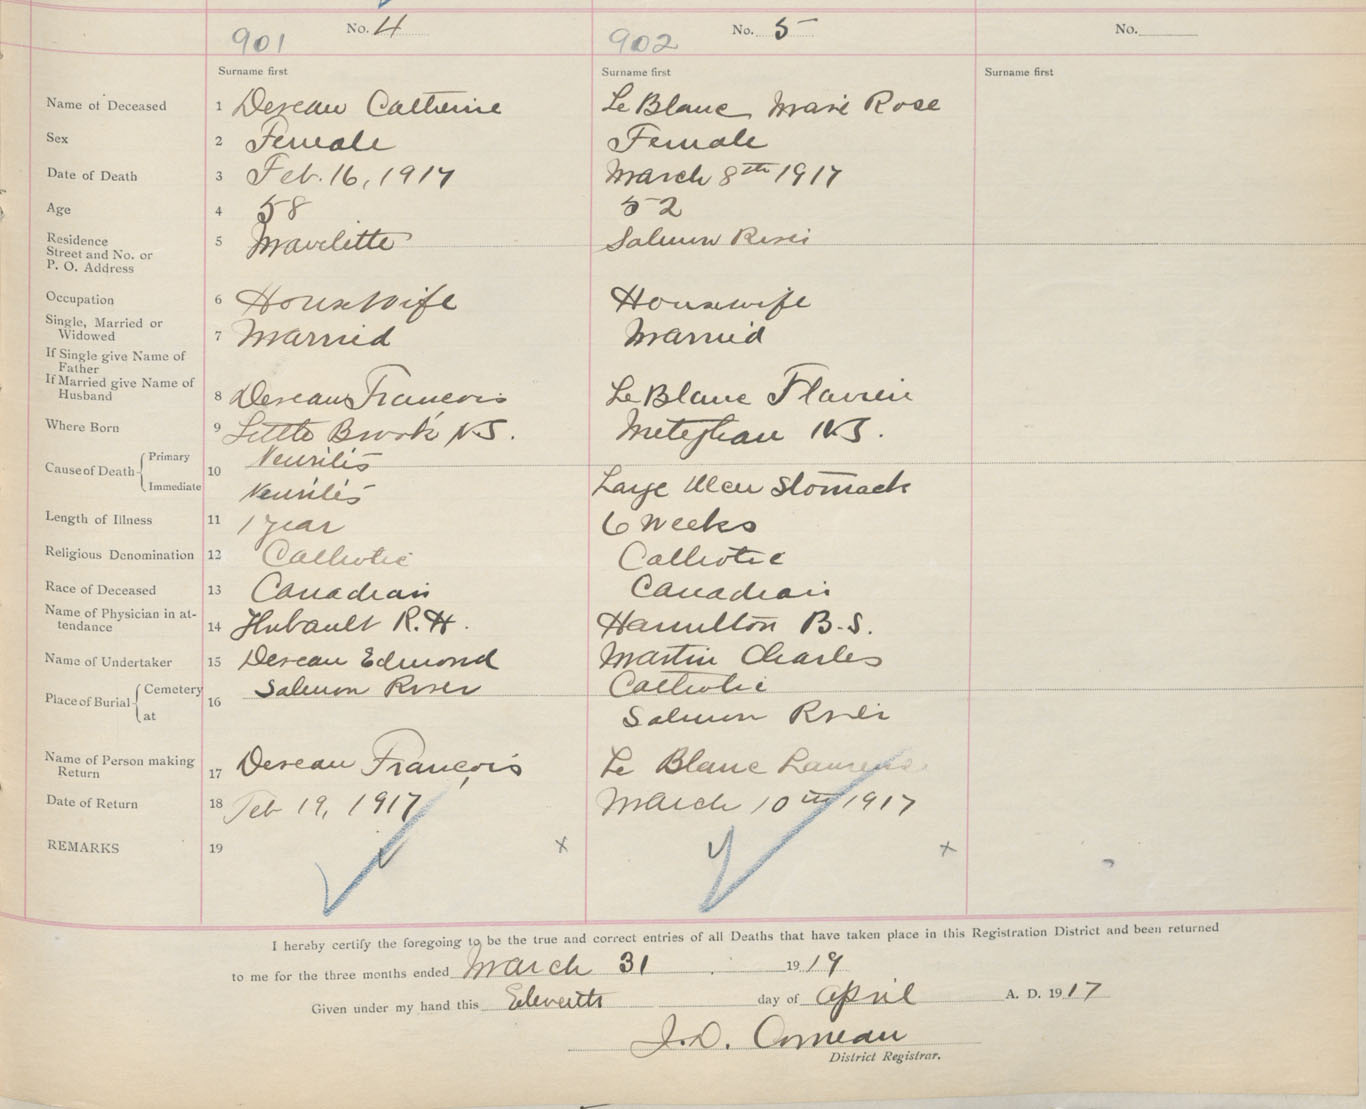 901 No. 4 902 No. 5 No.
Surname first Surname first Surname first
Name of Deceased 1 Deveau Catherine Le Blanc Marie Rose
Sex 2 Female Female
Date of Death 3 Feb. 16, 1917 March 8th 1917
Age 4 58 52
Residence 5 Mavilette Salmon River
Street and No. or
P. O. Address
Occupation 6 Housewife Housewife
Single, Married or
Widowed 7 Married Married
If Single give Name of
Father
If Married give Name of
Husband 8 Deveau Francois Le Blanc Flavien
Where Born 9 Little Brook N.S. Meteghan N.S.
Cause of Death Primary 10 Neuritis
Immediate Neuritis Large Ulcer Stomack
Length of Illness 11 1 year 6 Weeks
Religious Denomination 12 Catholic Catholic
Race of Deceased 13 Canadian Canadian
Name of Physician in at-
tendance 14 Hubault R.H. Hamilton B.S.
Name of Undertaker 15 Deveau Edmond Martin Charles
Place of Burial Cemetery 16 Salmon River Catholic
at Salmon River
Name of Person making
Return 17 Deveau François Le Blanc Laurens
Date of Return 18 Feb 19, 1917 March 10th 1917
REMARKS 19 x x
I hereby certify the foregoing to be the true and correct entries of all Deaths that have taken place in this Registration District and been returned
to me for the three months ended March 31 1919
Given under my hand this Eleventh day of April A. D. 1917
J.D. Comeau
District Registrar.